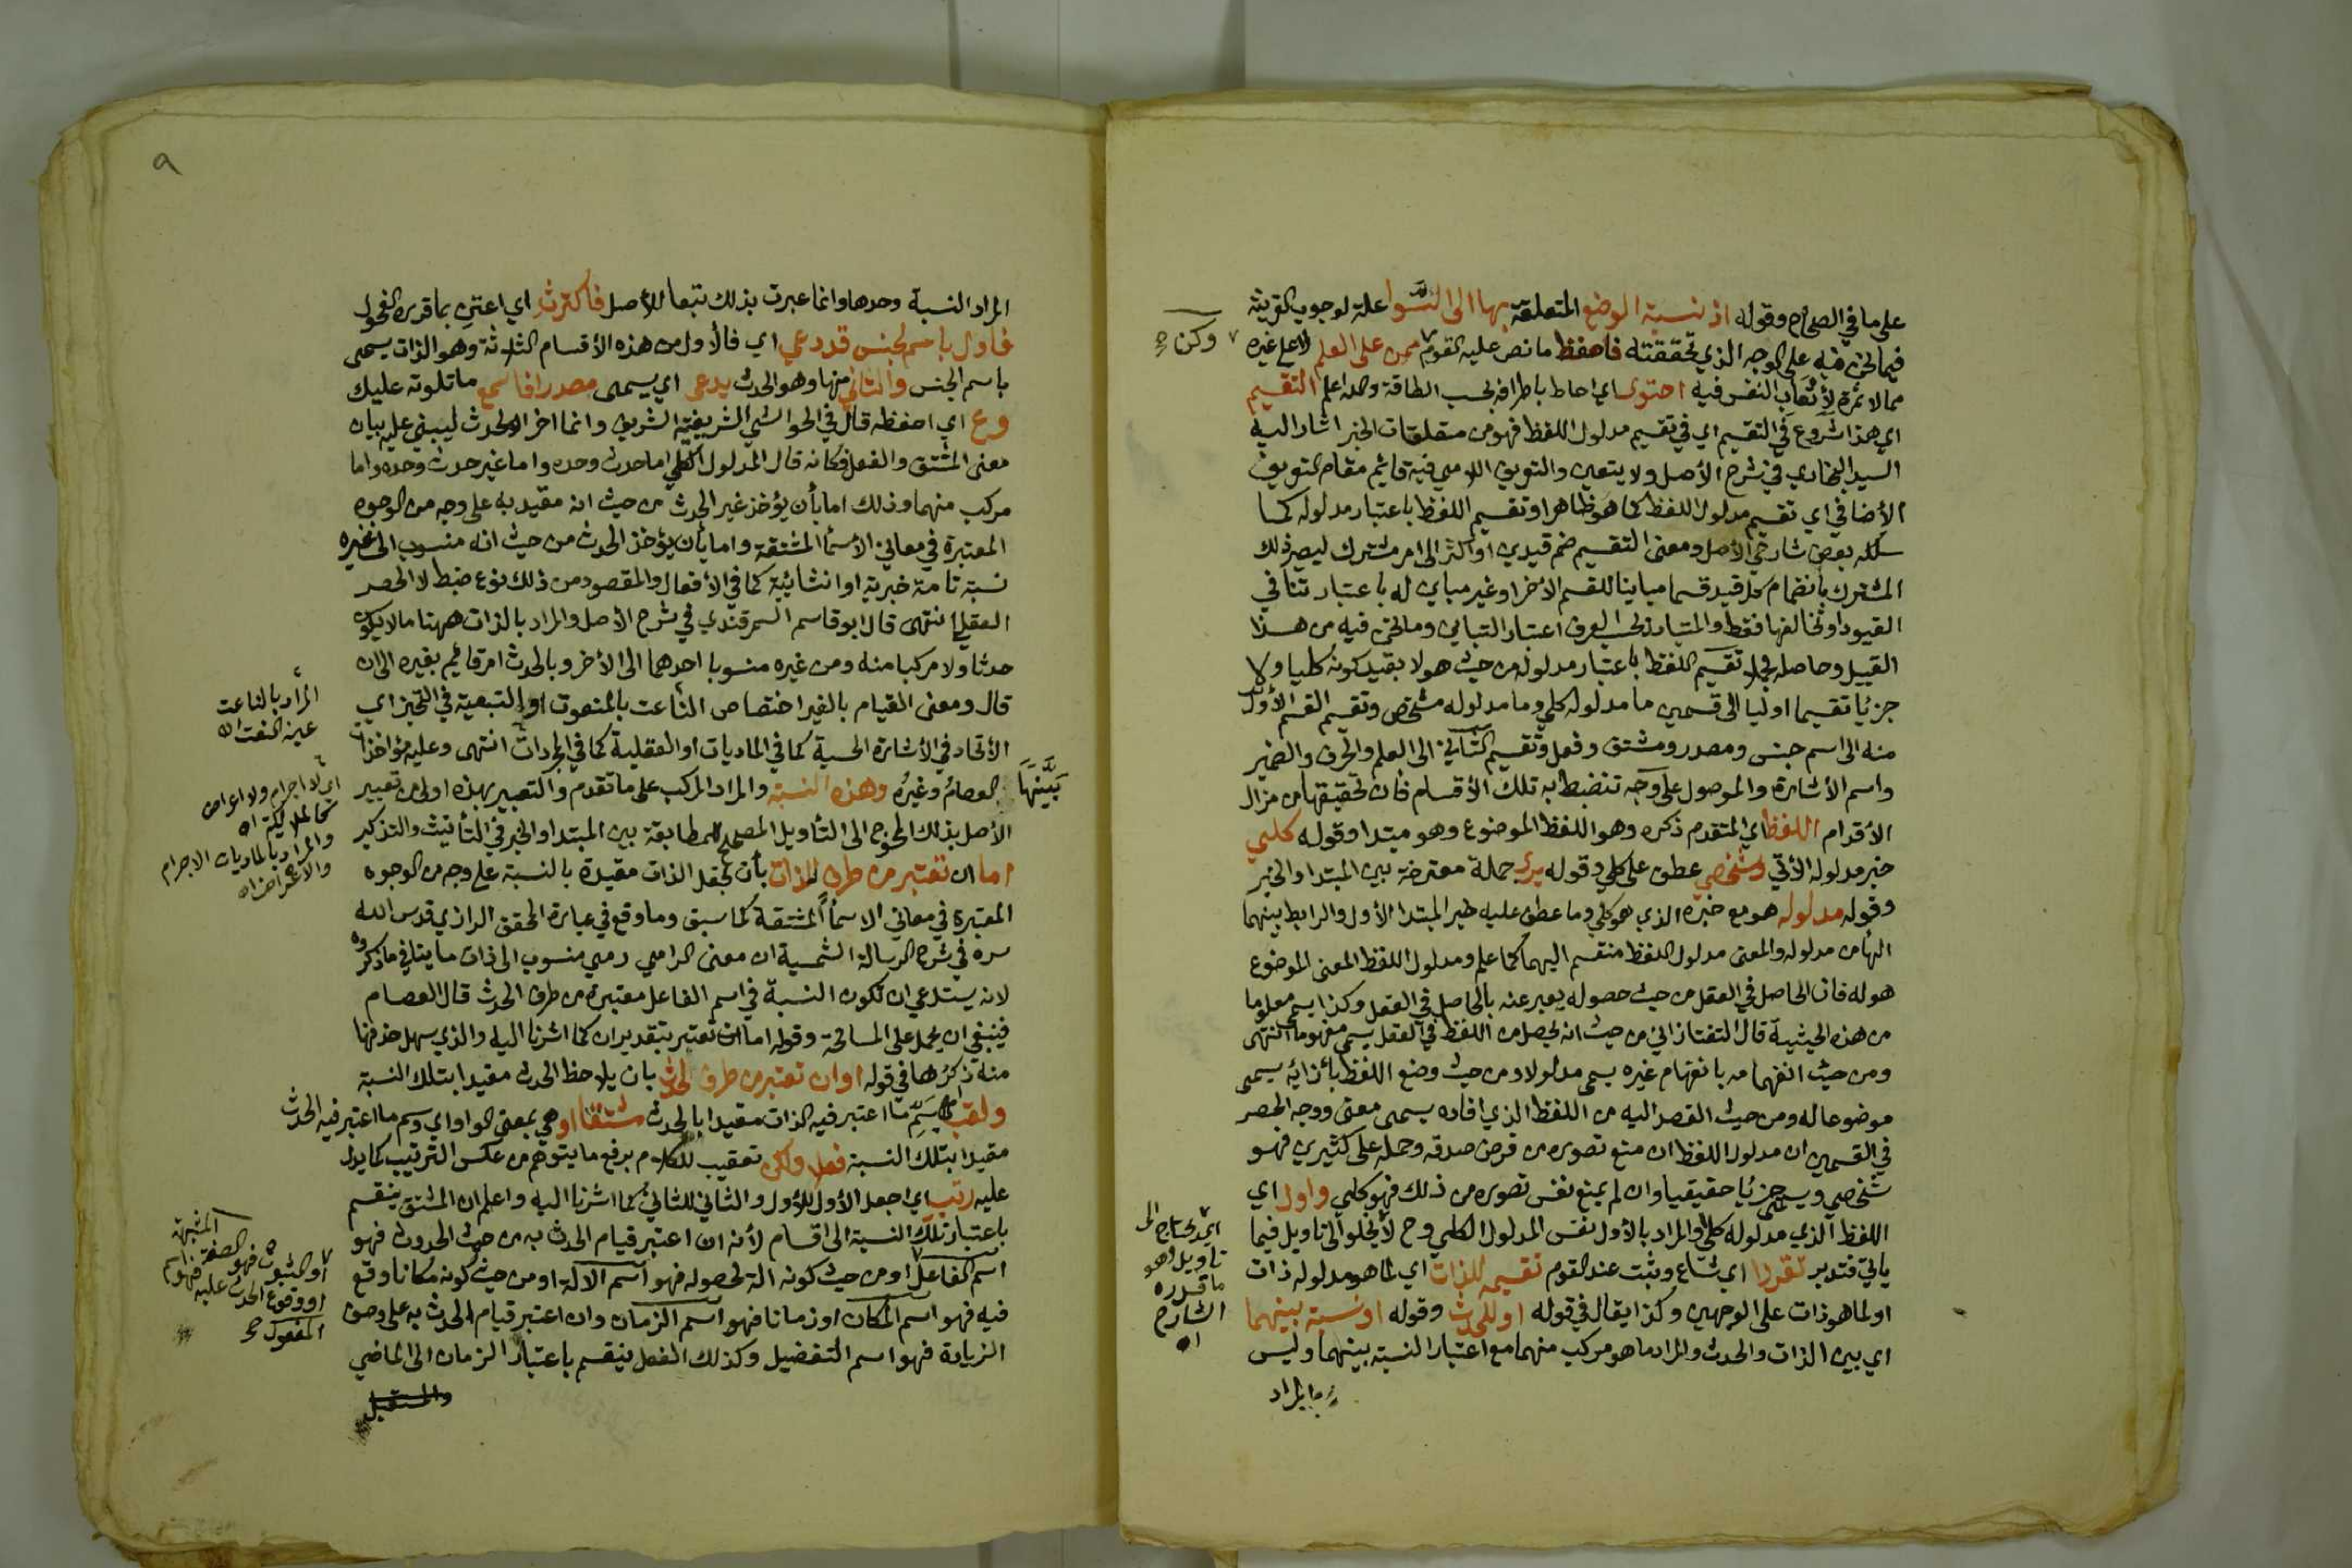 على ما في الصحاح وقوله اذ نسبة الوضع المتعلقة بها الى السوا علة لوجوب القرينة
فيما نحن فيه على الوجه الذي تحققته فاحفظ ما نص عليه القوم ممن على العلم لا على غيره
مما لا ثمرة لأتعاب النفس فيه احتوى اي احاط باطرافه بحسب الطاقة والله اعلم التقسيم
اي هذا شروع في التقسيم اي في تقسيم مدلول اللفظ فهو من متعلقات الخبر اشار اليه
السيد البخاري في شرح الأصل ولا يتعين والتعريف اللامي فيه قائم مقام التعريف
الأضافي اي تقسيم مدلول اللفظ كما هو ظاهر او تقسيم اللفظ باعتبار مدلوله كما
سلكه بعض شارحي الأصل ومعنى التقسيم ضم قيدين او اكثر الى امر مشترك ليصير ذلك
المشترك بانضمام كل قيد قسما مباينا للقسم الأخر او غير مباين له باعتبار تنافي
القيود او تخالفها فقط والمتبادر بحسب العرف اعتبار التباين وما نحن فيه من هذا
القبيل وحاصل تقسيم اللفظ باعتبار مدلوله من حيث هو لا بقيد كونه كليا ولا
جزئيا تقسيما اوليا الى قسمين ما مدلوله كلي وما مدلوله مشخص وتقسيم القسم الأول
منه الى اسم جنس ومصدر ومشتق وفعل وتقسيم الثاني الى العلم والحرف والضمير
واسم الأشارة والموصول على وجه تنضبط به تلك الأقسام فأن تحقيقها من مزال
الأقدام اللفظ اي المتقدم ذكره وهو اللفظ الموضوع وهو مبتدا وقوله كلي
خبر مدلوله الأتي وشخصي عطف على كلي وقوله يرى جملة معترضة بين المبتدا والخبر
وقوله مدلوله هو مع خبره الذي هو كلي وما عطف عليه خبر المبتدا الأول والرابط بينهما
الهاء من مدلوله والمعنى مدلول اللفظ منقسم اليهما كما علم ومدلول اللفظ المعنى الموضوع
هو له فان الحاصل في العقل من حيث حصوله يعبر عنه بالحاصل في العقل وكذا يسمى معلوما
من هذه الحيثية قال التفتازاني من حيث انه يحصل من اللفظ في العقل يسمى مفهوما انتهى
ومن حيث انفهامه بانفهام غيره يسمى مدلولا ومن حيث وضع اللفظ بأزائه يسمى
موضوعا له ومن حيث القصد اليه من اللفظ الذي افاده يسمى معنى ووجه الحصر
في القسمين ان مدلول اللفظ ان منع تصوره من فرض صدقه وحمله على كثيرين فهو
شخصي ويسمى جزئيا حقيقيا وان لم يمنع نفس تصوره من ذلك فهو كلي واول اي
اللفظ الذي مدلوله كلي والمراد بالأول نفس المدلول الكلي وح لا يخلو الى تاويل فيما
ياتي فتدبر تقررا اي شاع وثبت عند القوم تقسيمه للذات اي لما هو مدلوله ذات
او لما هو ذات على الوجهين وكذا يقال في قوله او للحدث وقوله او نسبة بينهما
اي بين الذات والحدث والمراد ما هو مركب منهما مع اعتبار النسبة بينهما وليس
المراد
وكن
اي لا يحتاج الى
تاويل هو
ما قدره
الشارح
اه
٩
المراد النسبة وحدها وانما عبرت بذلك تبعا للأصل فاكترث اي اعتن بما قرره الفحول
فاول باسم لجنس قد دعي اي فالأول من هذه الأقسام الثلاثة وهو الذات يسمى
باسم الجنس والثاني منها وهو الحدث يدعى اي يسمى مصدرا فاسمع ما تلوته عليك
وع اي احفظه قال في الحواشي الشريفية الشريف وانما اخر الحدث ليبني عليه بيان
معنى المشتق والفعل فكانه قال المدلول الكلي اما حدث وحده واما غير حدث وحده واما
مركب منهما وذلك اما بأن يؤخذ غير الحدث من حيث انه مقيد به على وجه من الوجوه
المعتبرة في معاني الأسماء المشتقة واما بأن يؤخذ الحدث من حيث انه منسوب الى غيره
نسبة تامة خبرية او انشائية كما في الأفعال والمقصود من ذلك نوع ضبط لا الحصر
العقلي انتهى قال ابو قاسم السمرقندي في شرح الأصل والمراد بالذات ههنا ما لا يكون
حدثا ولا مركبا منه ومن غيره منسوبا احدهما الى الأخر وبالحدث امر قائم بغيره الى ان
قال ومعنى القيام بالغير اختصاص الناعت بالمنعوت او التبعية في التحيز اي
الأتحاد في الأشارة الحسية كما في الماديات او العقلية كما في المجردات انتهى وعليه مؤاخذات
بينها العصام وغيره وهذه النسبة والمراد المركب على ما تقدم والتعبير بهذه اولى من تعبير
الأصل بذلك المحوج الى التأويل المصحح للمطابقة بين المبتدا والخبر في التأنيث والتذكير
اما ان تعتبر من طرف الذات بأن تجعل الذات مقيدة بالنسبة على وجه من الوجوه
المعتبرة في معاني الاسماء المشتقة كما سبق وما وقع في عبارة المحقق الرازي قدس الله
سره في شرح الرسالة الشمسية ان معنى الرامي رمي منسوب الى ذات ما ينافي ما ذكروه
لانه يستدعي ان تكون النسبة في اسم الفاعل معتبرة من طرف الحدث قال العصام
فينبغي ان يحمل على المسامحة وقوله اما ان تعتبر بتقدير ان كما اشرنا اليه والذي سهل حذفها
منه ذكرها في قوله او ان تعتبر من طرف الحدث بان يلاحظ الحدث مقيدا بتلك النسبة
ولقب اي سم ما اعتبر فيه الذات مقيدا بالحدث مشتقا او هي بمعنى الواو اي وسم ما اعتبر فيه الحدث
مقيدا بتلك النسبة فعلا ولكن تعقيب للكلام برفع ما يتوهم من عكس الترتيب كما يدل
عليه رتب اي اجعل الأول للأول والثاني للثاني كما اشرنا اليه واعلم ان المشتق ينقسم
باعتبار تلك النسبة الى اقسام لأنه ان اعتبر قيام الحدث به من حيث الحدوث فهو
اسم الفاعل او من حيث كونه الة لحصوله فهو اسم الالة او من حيث كونه مكانا وقع
فيه فهو اسم المكان او زمانا فهو اسم الزمان وان اعتبر قيام الحدث به على وصف
الزيادة فهو اسم التفضيل وكذلك الفعل ينقسم باعتبار الزمان الى الماضي
والمستقبل
المراد بالناعت
عين النعت اه
اي لا اجرام ولا اعراض
كالملائكة اه
والمراد بالماديات الاجرام
والاعراض اه
او الثبوت فهو الصفة المشبهة
او وقوع الحدث عليه فهو اسم
المفعول صح